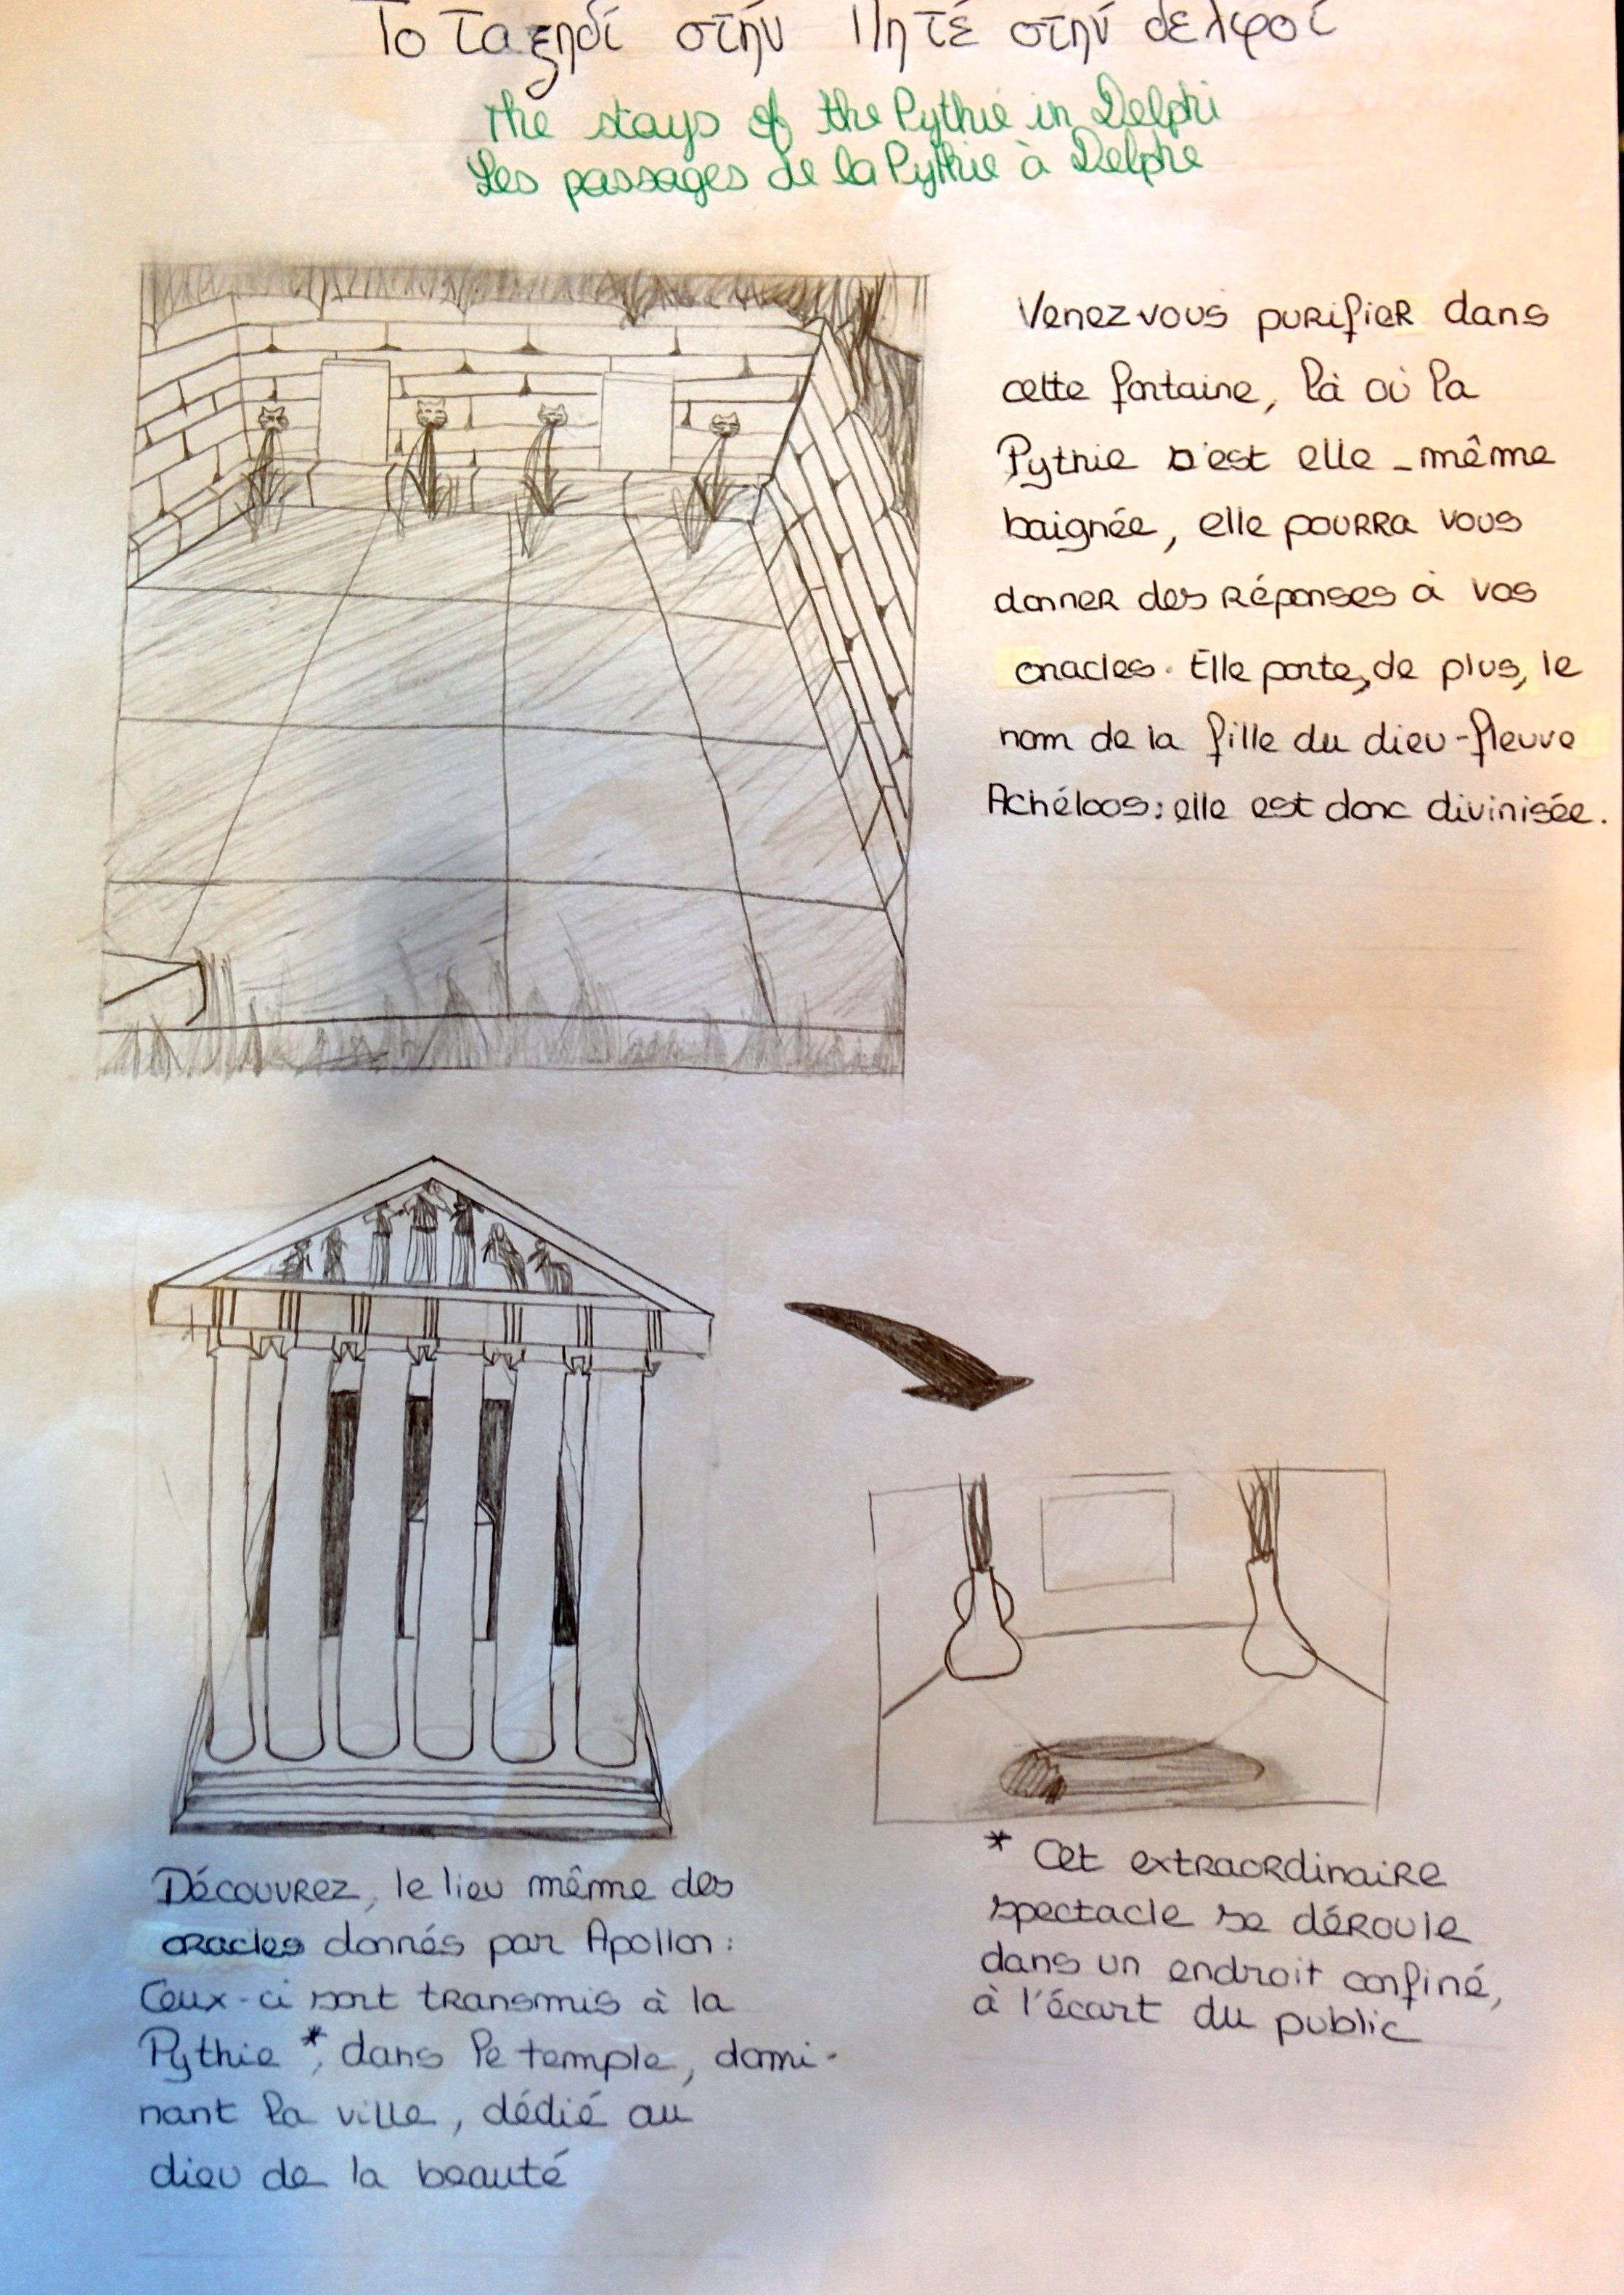 Το ταξηδί στήν Πητέ στήν δελφοί
The stays of the Pythie in Delphi
Les passages de la Pythie à Delphe
Venez vous purifier dans
cette fontaine, là où la
Pythie s'est elle-même
baignée, elle pourra vous
donner des réponses à vos
oracles. Elle porte, de plus, le
nom de la fille du dieu-fleuve
Achéloos : elle est donc divinisée.
Découvrez, le lieu même des
oracles donnés par Apollon :
Ceux-ci sont transmis à la
Pythie *, dans le temple, domi-
nant la ville, dédié au
dieu de la beauté
* Cet extraordinaire
spectacle se déroule
dans un endroit confiné,
à l'écart du public